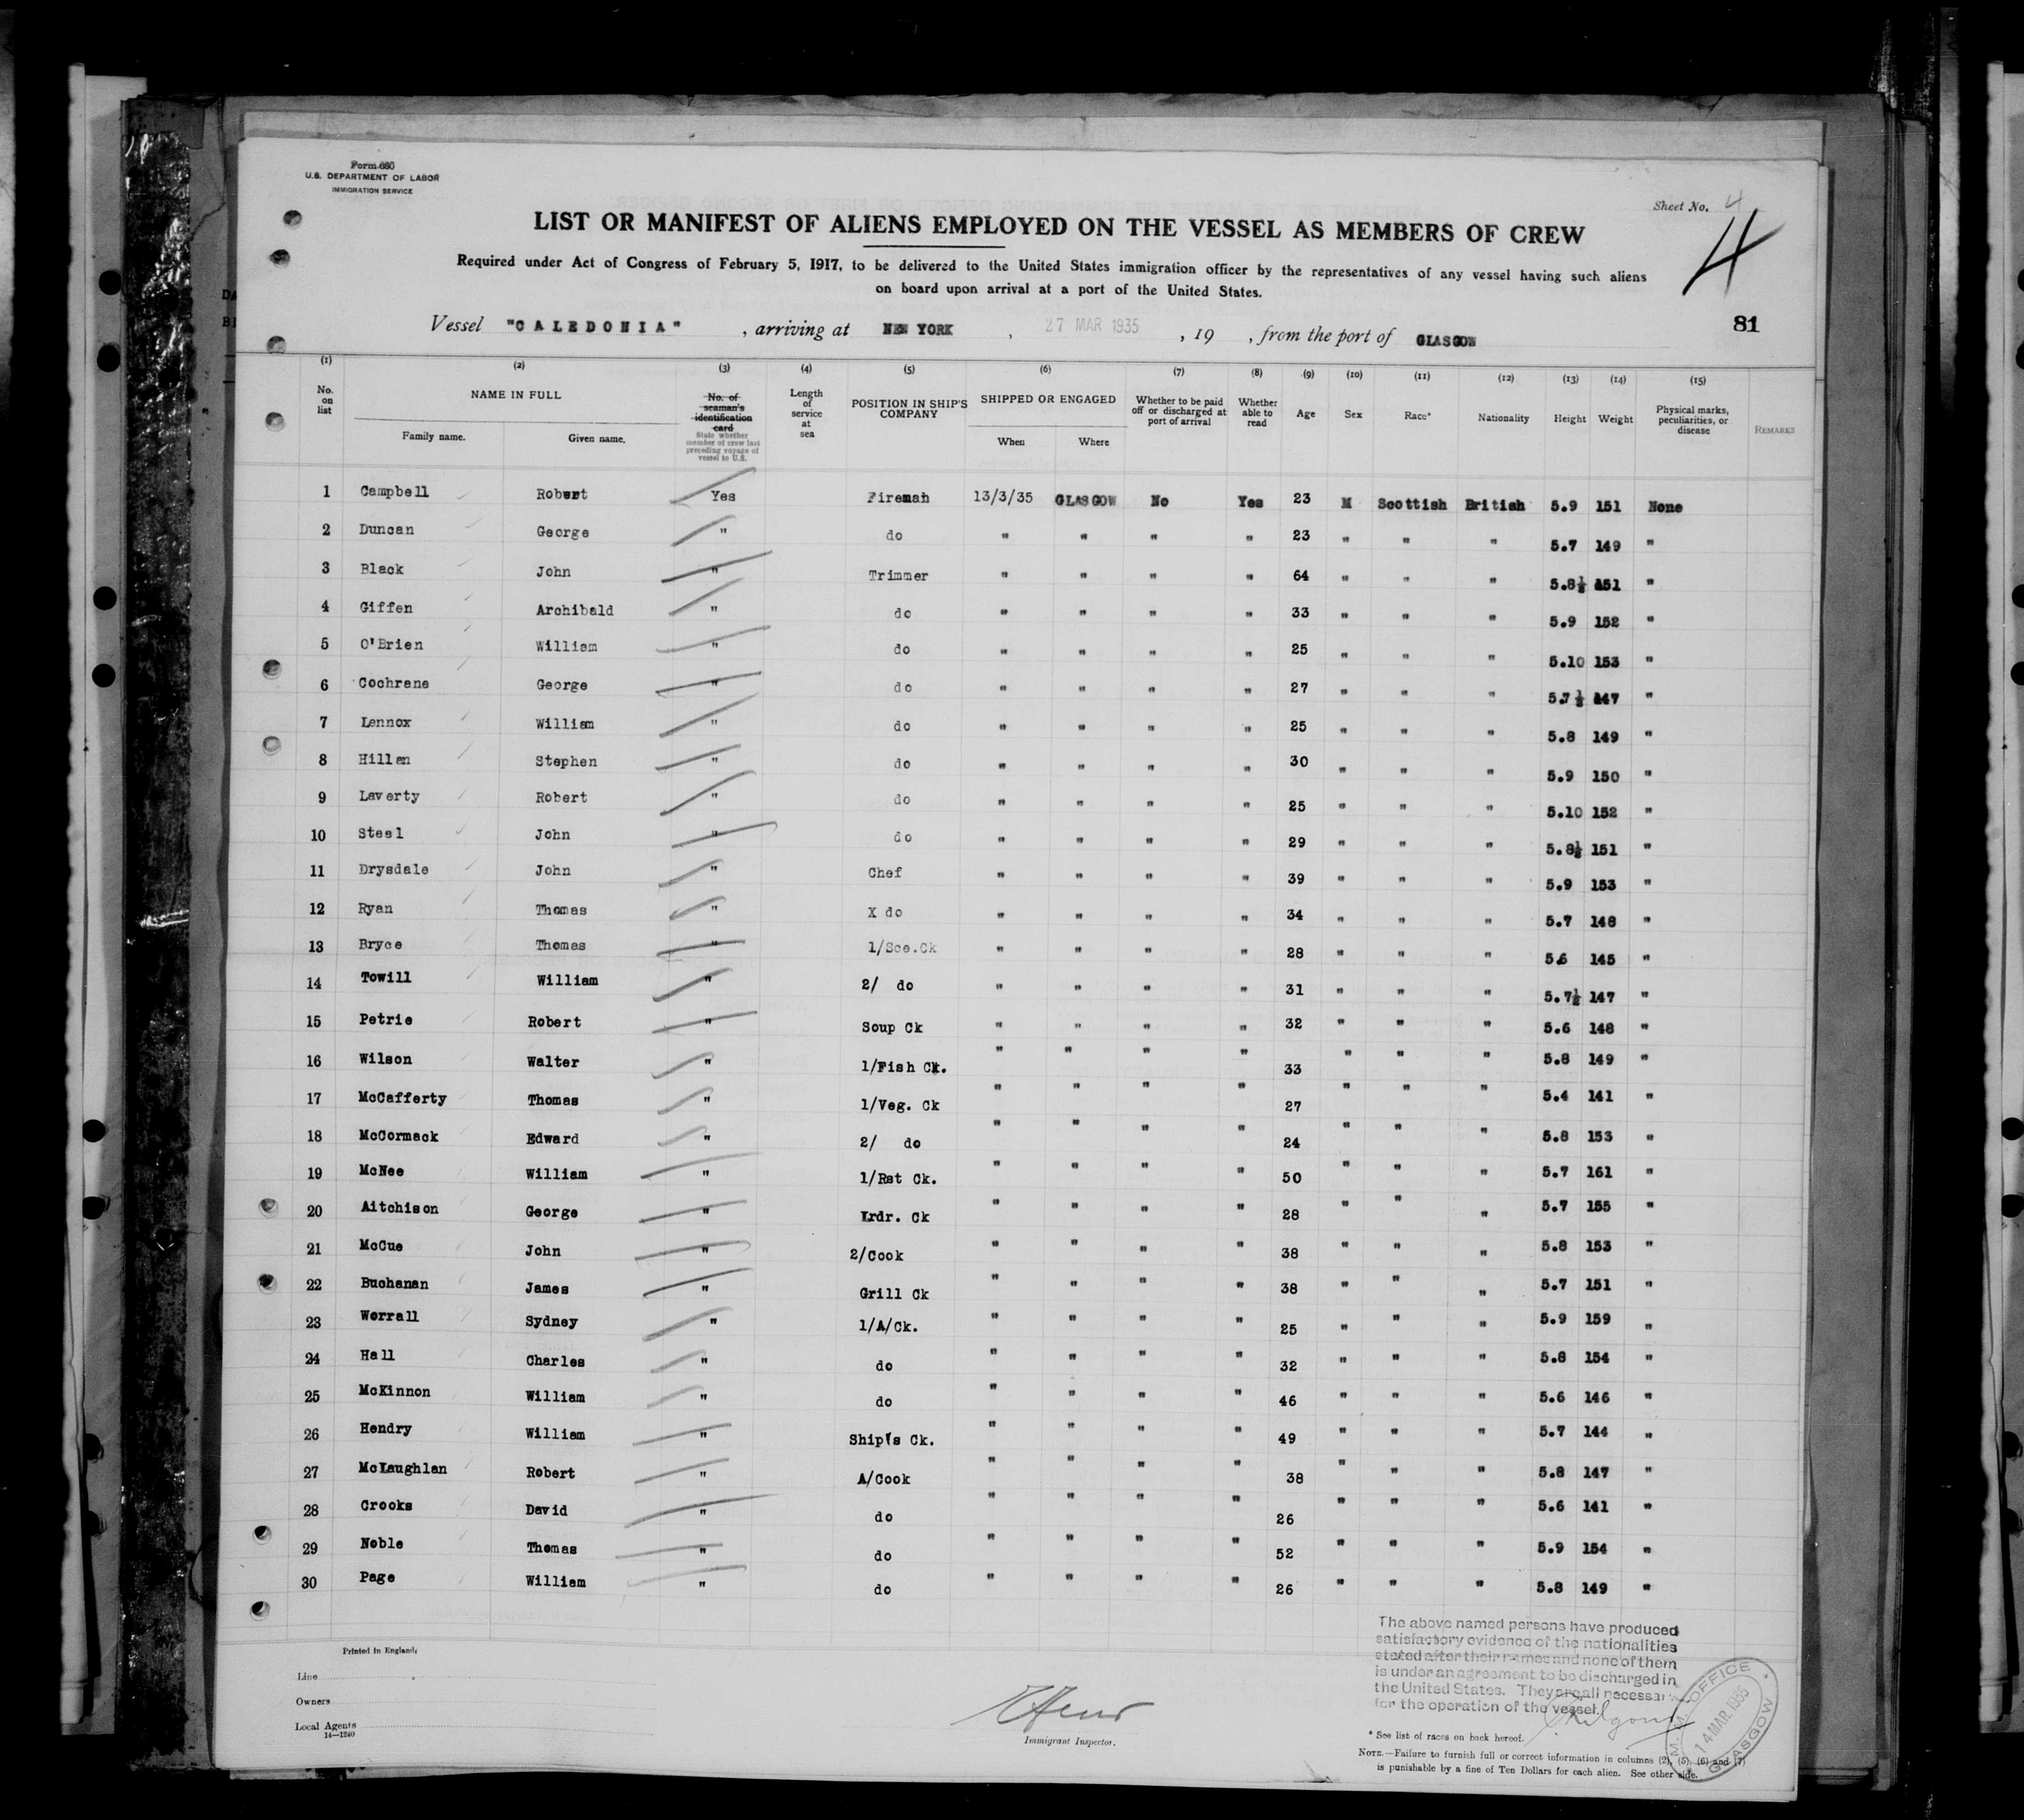 Form 680
U.S. DEPARTMENT OF LABOR
IMMIGRATION SERVICE
Sheet No. 4
4
LIST OR MANIFEST OF ALIENS EMPLOYED ON THE VESSEL AS MEMBERS OF CREW
Required under Act of Congress of February 5, 1917, to be delivered to the United States immigration officer by the representatives of any vessel having such aliens
on board upon arrival at a port of the United States.
Vessel "CALEDONIA", arriving at NEW YORK, 27 MAR 1935, 19 , from the port of GLASGOW
81
(1) (2) (3) (4) (5) (6) (7) (8) (9) (10) (11) (12) (13) (14) (15)
No. on list NAME IN FULL Family name. Given name. No. of seaman's identification card State whether member of crew last preceding voyage of vessel to U.S. Length of service at sea POSITION IN SHIP'S COMPANY SHIPPED OR ENGAGED When Where Whether to be paid off or discharged at port of arrival Whether able to read Age Sex Race* Nationality Height Weight Physical marks, peculiarities, or disease REMARKS
1 Campbell Robert Yes Fireman 13/3/35 GLASGOW No Yes 23 M Scottish British 5.9 151 None
2 Duncan George " do " " " " 23 " " " 5.7 149 "
3 Black John " Trimmer " " " " 64 " " " 5.8½ 151 "
4 Giffen Archibald " do " " " " 33 " " " 5.9 152 "
5 O'Brien William " do " " " " 25 " " " 5.10 153 "
6 Cochrane George " do " " " " 27 " " " 5.7½ 147 "
7 Lennox William " do " " " " 25 " " " 5.8 149 "
8 Hillan Stephen " do " " " " 30 " " " 5.9 150 "
9 Laverty Robert " do " " " " 25 " " " 5.10 152 "
10 Steel John " do " " " " 29 " " " 5.8½ 151 "
11 Drysdale John " Chef " " " " 39 " " " 5.9 153 "
12 Ryan Thomas " X do " " " " 34 " " " 5.7 148 "
13 Bryce Thomas " 1/Sce.Ck " " " " 28 " " " 5.6 145 "
14 Towill William " 2/ do " " " " 31 " " " 5.7½ 147 "
15 Petrie Robert " Soup Ck " " " " 32 " " " 5.6 148 "
16 Wilson Walter " 1/Fish Ck. " " " " 33 " " " 5.8 149 "
17 McCafferty Thomas " 1/Veg. Ck " " " " 27 " " " 5.4 141 "
18 McCormack Edward " 2/ do " " " " 24 " " " 5.8 153 "
19 McNee William " 1/Rst Ck. " " " " 50 " " " 5.7 161 "
20 Aitchison George " Lrdr. Ck " " " " 28 " " " 5.7 155 "
21 McCue John " 2/Cook " " " " 38 " " " 5.8 153 "
22 Buchanan James " Grill Ck " " " " 38 " " " 5.7 151 "
23 Worrall Sydney " 1/A/Ck. " " " " 25 " " " 5.9 159 "
24 Hall Charles " do " " " " 32 " " " 5.8 154 "
25 McKinnon William " do " " " " 46 " " " 5.6 146 "
26 Hendry William " Ship's Ck. " " " " 49 " " " 5.7 144 "
27 McLaughlan Robert " A/Cook " " " " 38 " " " 5.8 147 "
28 Crooks David " do " " " " 26 " " " 5.6 141 "
29 Noble Thomas " do " " " " 52 " " " 5.9 154 "
30 Page William " do " " " " 26 " " " 5.8 149 "
The above named persons have produced
satisfactory evidence of the nationalities
stated after their names and none of them
is under an agreement to be discharged in
the United States. They are all necessary
for the operation of the vessel.
Printed in England.
Line
Owners
Local Agents
14—1240
Immigrant Inspector.
M. M. OFFICE
14 MAR. 1935
GLASGOW
* See list of races on back hereof.
NOTE.—Failure to furnish full or correct information in columns (2), (5), (6) and (7)
is punishable by a fine of Ten Dollars for each alien. See other side.